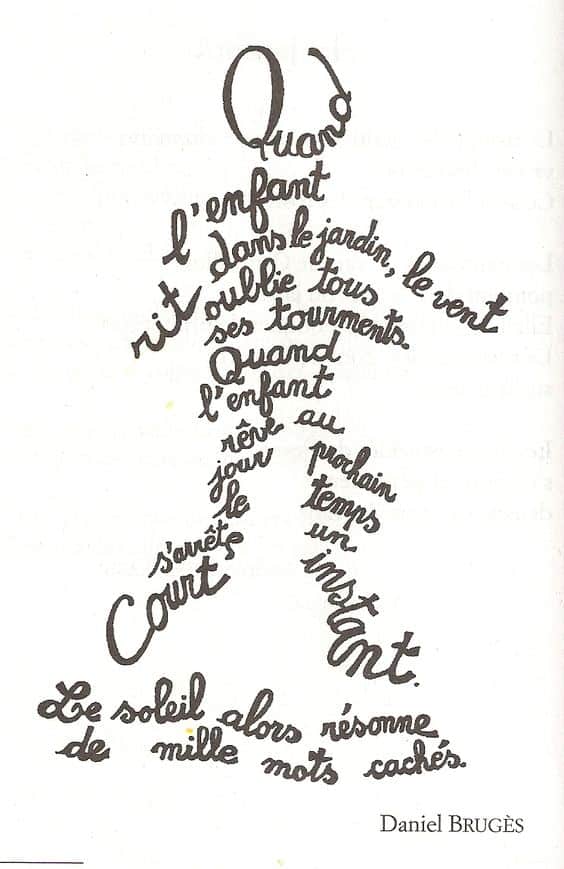 Quand
l'enfant
rit dans le jardin, le vent
oublie tous
ses tourments.
Quand
l'enfant
rêve au
prochain
jour
le temps
s'arrête un
Court instant.
Le soleil alors résonne
de mille mots cachés.
Daniel BRUGÈS